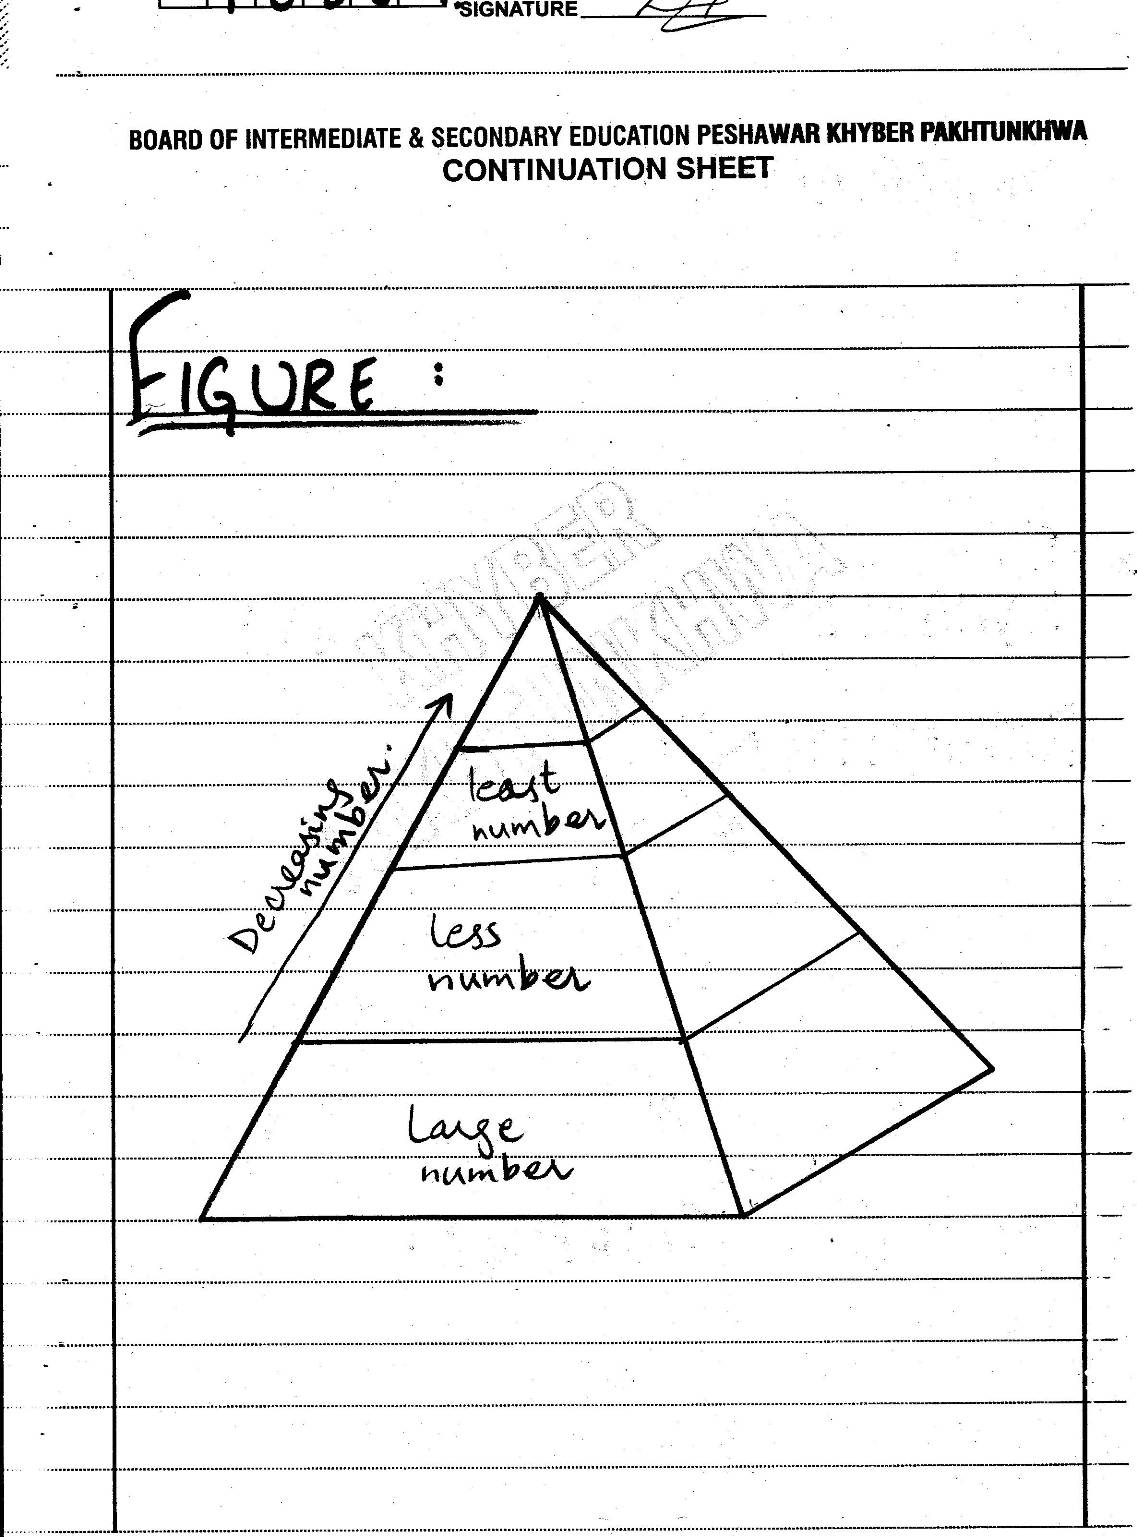 SIGNATURE
BOARD OF INTERMEDIATE & SECONDARY EDUCATION PESHAWAR KHYBER PAKHTUNKHWA
CONTINUATION SHEET
FIGURE :
KHYBER
Decreasing
number.
least
number
less
number
Large
number